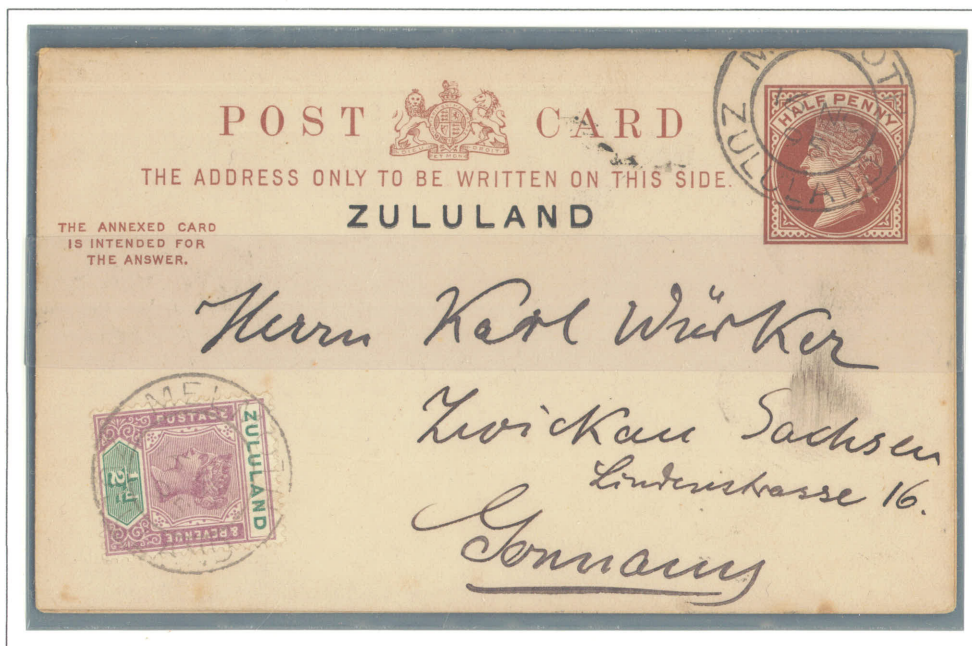 POST CARD
THE ADDRESS ONLY TO BE WRITTEN ON THIS SIDE.
ZULULAND
THE ANNEXED CARD
IS INTENDED FOR
THE ANSWER.
HALF PENNY
ZULULAND
Herrn Karl Würker
Zwickau Sachsen
Lindenstrasse 16.
Germany
ZULULAND
POSTAGE
& REVENUE
½d